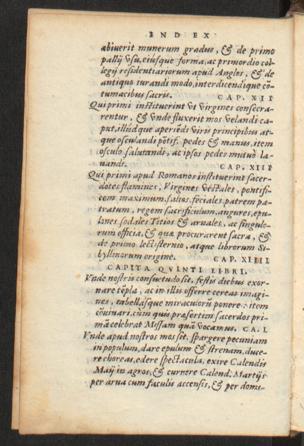 INDEX
abiuerit munerum gradus, & de primo
pallij vsu, eiusque forma, ac primordio col-
legij residentiariorum apud Anglos, & de
antiquo iurandi modo, interdicendique co-
tumacibus sacris. CAP. XII
Qui primi instituerint vt virgines consecra-
rentur, & vnde fluxerit mos velandi ca-
put, illudque aperiēdi viris principibus at-
que osculandi pōtif. pedes & manus, item
osculo salutandi, ac ipsos pedes mutuò la-
uandi. CAP. XIII
Qui primi apud Romanos instituerint sacer-
dotes flamines, Virgines vestales, pontifi-
cem maximum, salios, feciales, patrem pa-
tratum, regem sacrificulum, augures, epu-
lones, sodales Titios & aruales, ac singulo-
rum officia, & qua procurarent sacra, &
de primo lectisternio, atque librorum Si-
byllinorum origine. CAP. XIIII
CAPITA QVINTI LIBRI.
Vnde nostris consuetudo sit, festis diebus exor-
nare tēpla, ac in illis offerre cereas imagi-
nes, tabellasque miraculorū ponere, item
cōuiuari, cum quis præsertim sacerdos pri-
mā celebrat Missam quā vocamus. CA. I.
Vnde apud nostros mos sit, spargere pecuniam
in populum, dare epulum & strenam, duce-
re choreas, edere spectacula, exire Calendis
Maij in agros, & currere Calend. Martijs
per arua cum faculis accensis, & per domi-